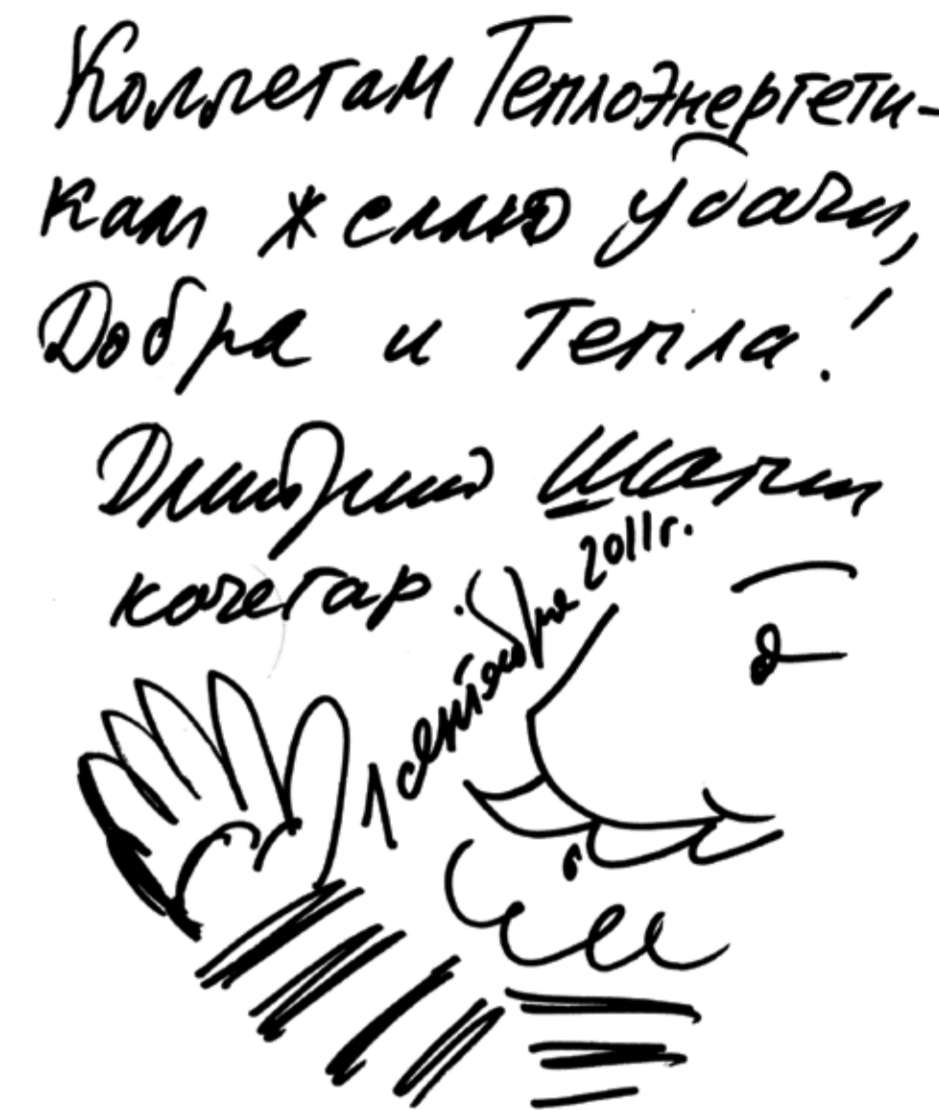 Коллегам Теплоэнергети-
кам желаю удачи,
Добра и Тепла!
Дмитрий Шагин
кочегар.
1 сентября 2011г.